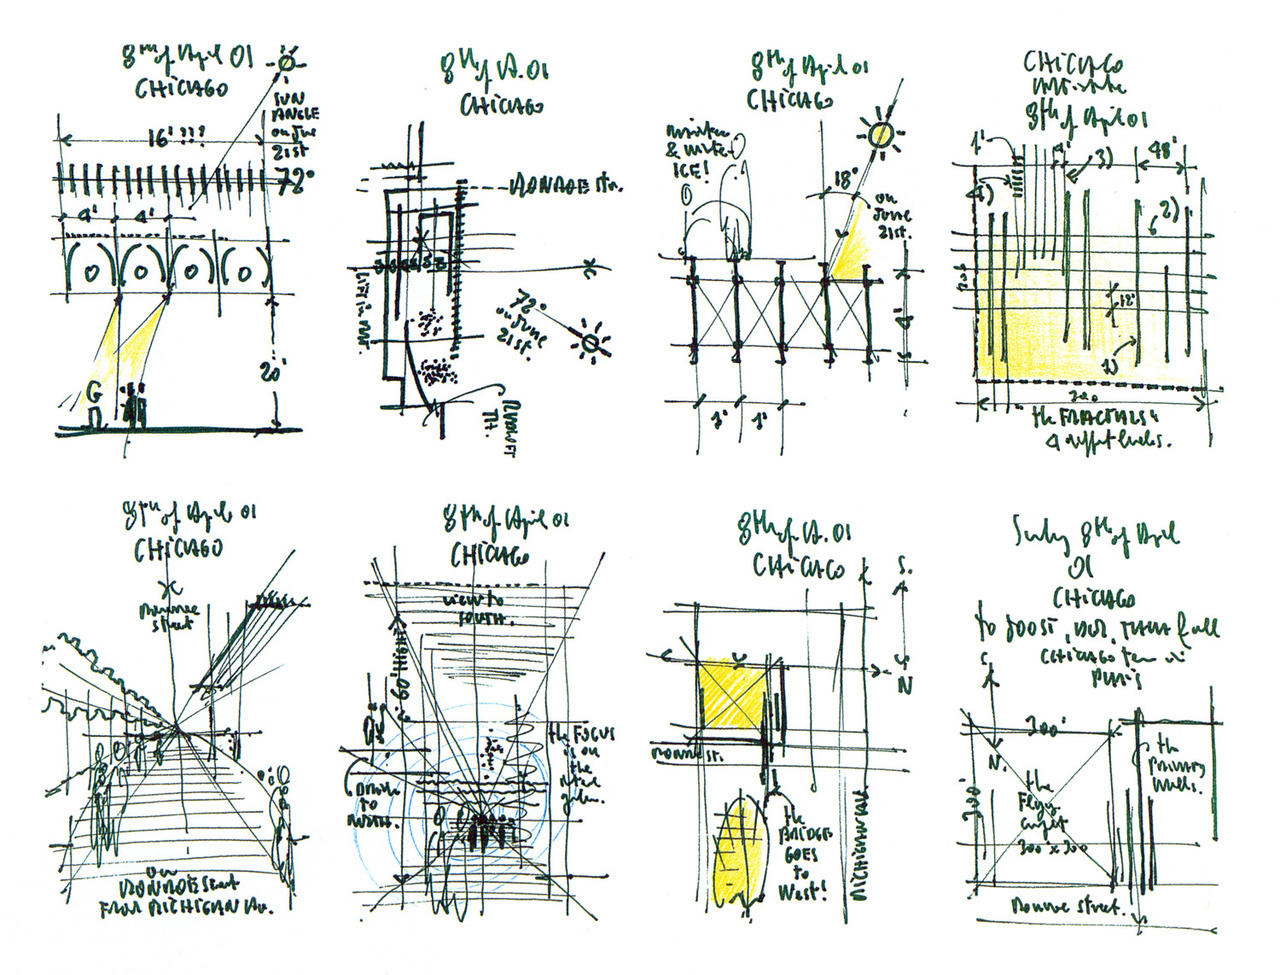 8th of April 01
CHICAGO
SUN
ANGLE
on June
21st
72°
16' ???
4' 4'
20'
G
8th of A. 01
CHICAGO
MONROE Str.
72°
on June
21st.
8th of April 01
CHICAGO
winter
& water
ICE!
18°
on
June
21st.
4'
1' 1'
CHICAGO
8th of April 01
1'
4'
3)
48'
4)
2)
6
12'
1)
the FRACTALS
4 different levels.
8th of April 01
CHICAGO
Monroe
street
on
MONROE Street
FROM MICHIGAN Av.
8th of April 01
CHICAGO
view to
SOUTH.
60' HIGH
the FOCUS
is on
the
to
NORTH.
8th of A. 01
CHICAGO
S.
N
Monroe St.
the
BRIDGE
GOES
to
West!
Sunday 8th of April
01
CHICAGO
N.
300'
300'
the
Flying
carpet
300' x 300
the
primary
walls.
Monroe street.